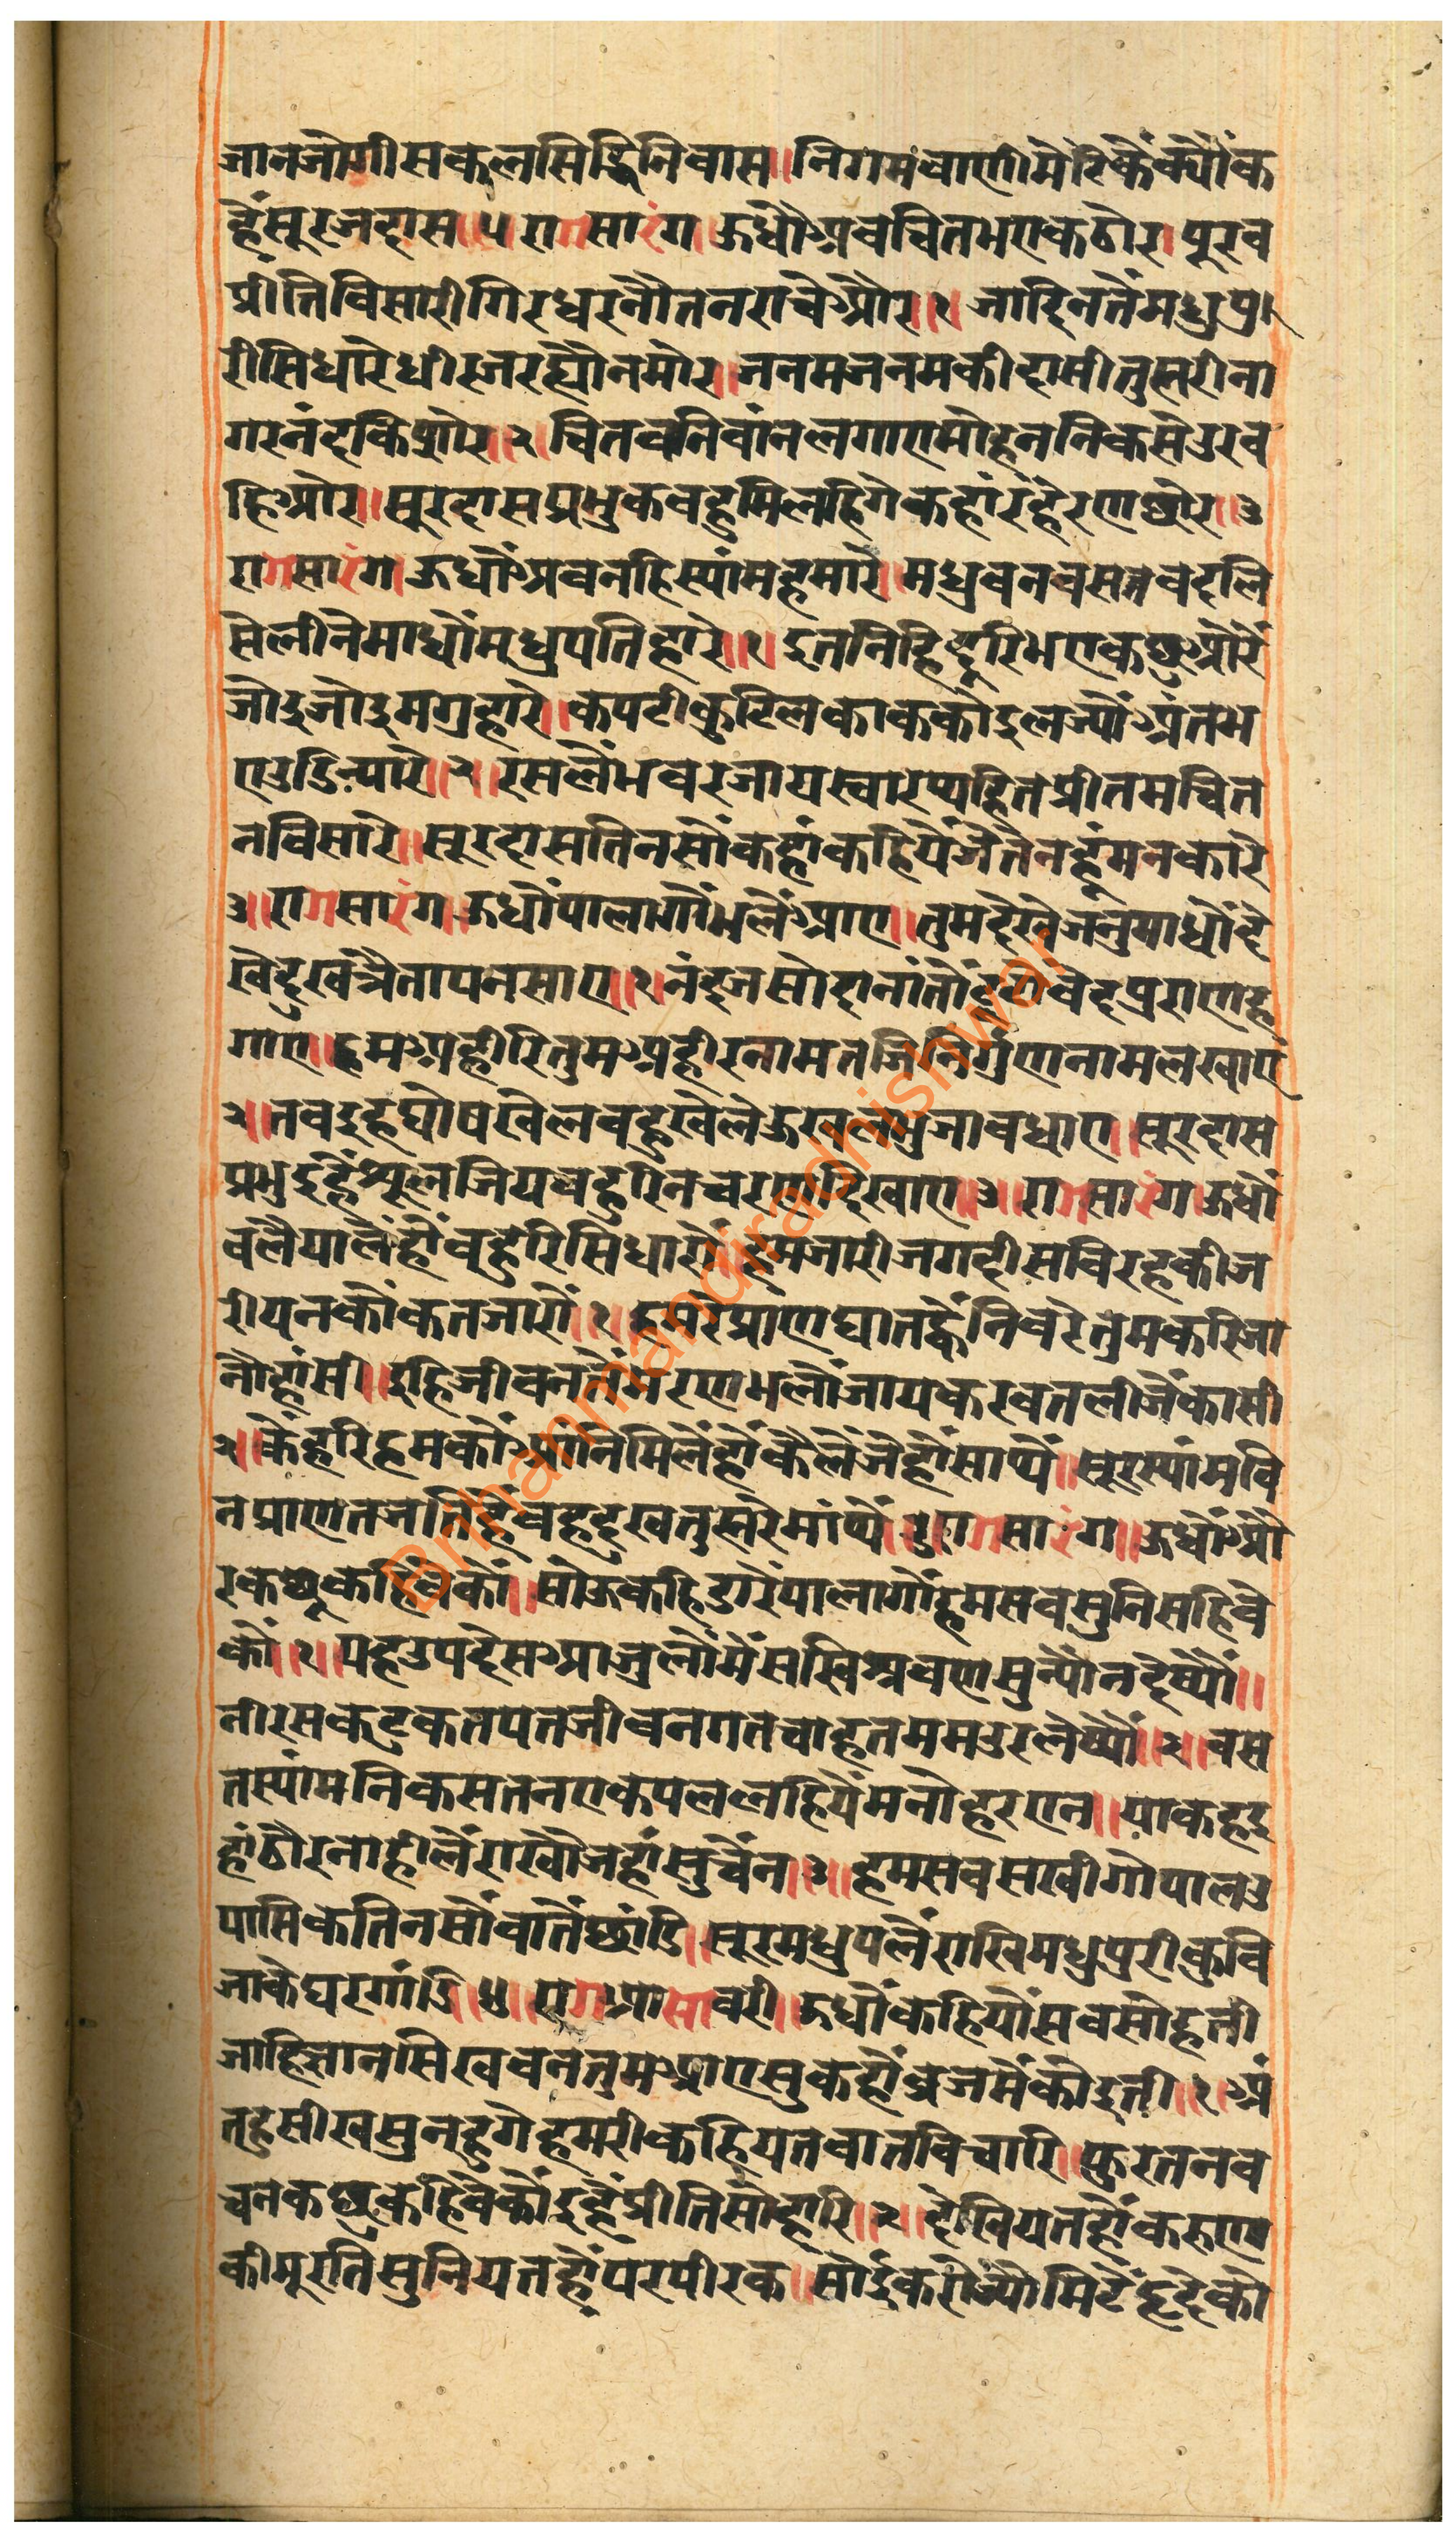 जानजोगीसकलसिद्धिनिवास॥निगमवाणीमेरिकैंक्यौंक
हैंसुरजदास॥५रागसारंग।ऊधौअवचितभएकठोर।पूरव
प्रीतिविसारीगिरधरनौतनराचेऔर॥१।जादिनतैंमधुपु
रीसिधारेधीरजरह्यौनमोर॥जनमजनमकीदासीतुह्मरीना
गरनंदकिशोर॥२।चितवनिवांनलगाएमोहननिकसेउरव
हिओर॥सुरदासप्रभुकवहुमिलहिगेकहांरहैरणछोर॥३
रागसारंग।ऊधौंअवनहिस्यांमहमारे।मधुवनवसतवदलि
सेलीनेमाधौंमधुपतिहारे॥१।इतनिहिदूरिभएकछुऔरें
जोइजोइमगुहारे॥कपटीकुटिलकाककोइलज्यौंअंतभ
एउडिन्यारे॥२॥रसलैंभवरजायस्वारथ्यहितप्रीतमचित
नविसारे॥सुरदासतिनसौंकहांकहियैंजेतैनहूंमनकारे
३॥रागसारंग।ऊधौंपालागौंभलैंआए॥तुमदेखेजनुमाधौंदे
खेदुखत्रैतापनसाए॥१।नंदजसोदानांतौंटूटौवेदपुराणहु
गाए॥हमअहीरितुमअहीरनामतजिनिर्गुणनामलखाएं
२॥तवइहघोषखेलवहुखेलेऊखलभुजावधाए॥सुरदास
प्रभुइहैंशूलजियवहुरिनचरणदिखाए॥३॥रागसारंग।ऊधौं
वलैयालैंहौंवुहरिसिधारौ॥हमजारीजगदीसविरहकीज
रीयनकौंकतजारौं॥१।हमरेप्राणघातह्वैंनिवरेतुमकरिजा
नौहांसी॥इहिजीवनतैंमरणभलौंजायकरवतलीजैंकासी
२॥कैंहरिहमकौंआंनिमिलैंहौंकैलैंजैहौंसाथैं॥सुरस्यांमवि
नप्राणतजतिहैंवहदुखतुह्मरेमांथैं॥३॥रागसारंग॥ऊधौंऔ
रकछुकहिवेकौं॥सोऊकहिडारैंपालागौंहमसवसुनिसहिवे
कौं॥१॥यहउपदेसआजुलौंमैंसखिश्रवणसुन्यौनदेष्यौं॥
नीरसकटुकतपतजीवनगतचाहतममउरलेष्यौं॥२॥वस
तस्यांमनिकसतनएकपललहियैंमनोहरएन॥याकहइ
हांठौरनाहीलैंराखौजहांसुचैंन॥३॥हमसवसखीगोपालउ
पासिकेतिनसौंवातैंछांडि॥सुरमधुपलैंराखिमधुपुरीकुवि
जाकेघरगांडि॥४॥रागआसावरी॥ऊधौंकहियौंसवसोहती
जाहिज्ञानसिखवनतुमआएसुकहौंव्रजमैंकोइती॥१॥अं
तहुसीखसुनहुगेहमरीकहियतवातविचारि॥फुरतनव
चनकछुकहिवैकौंइहैंप्रीतिसोंहारि॥२॥देखियतहौंकरुणा
कीमुरतिसुनियतहौंपरपीरक॥सोईकरोज्यौमिटैंहृदेकौ